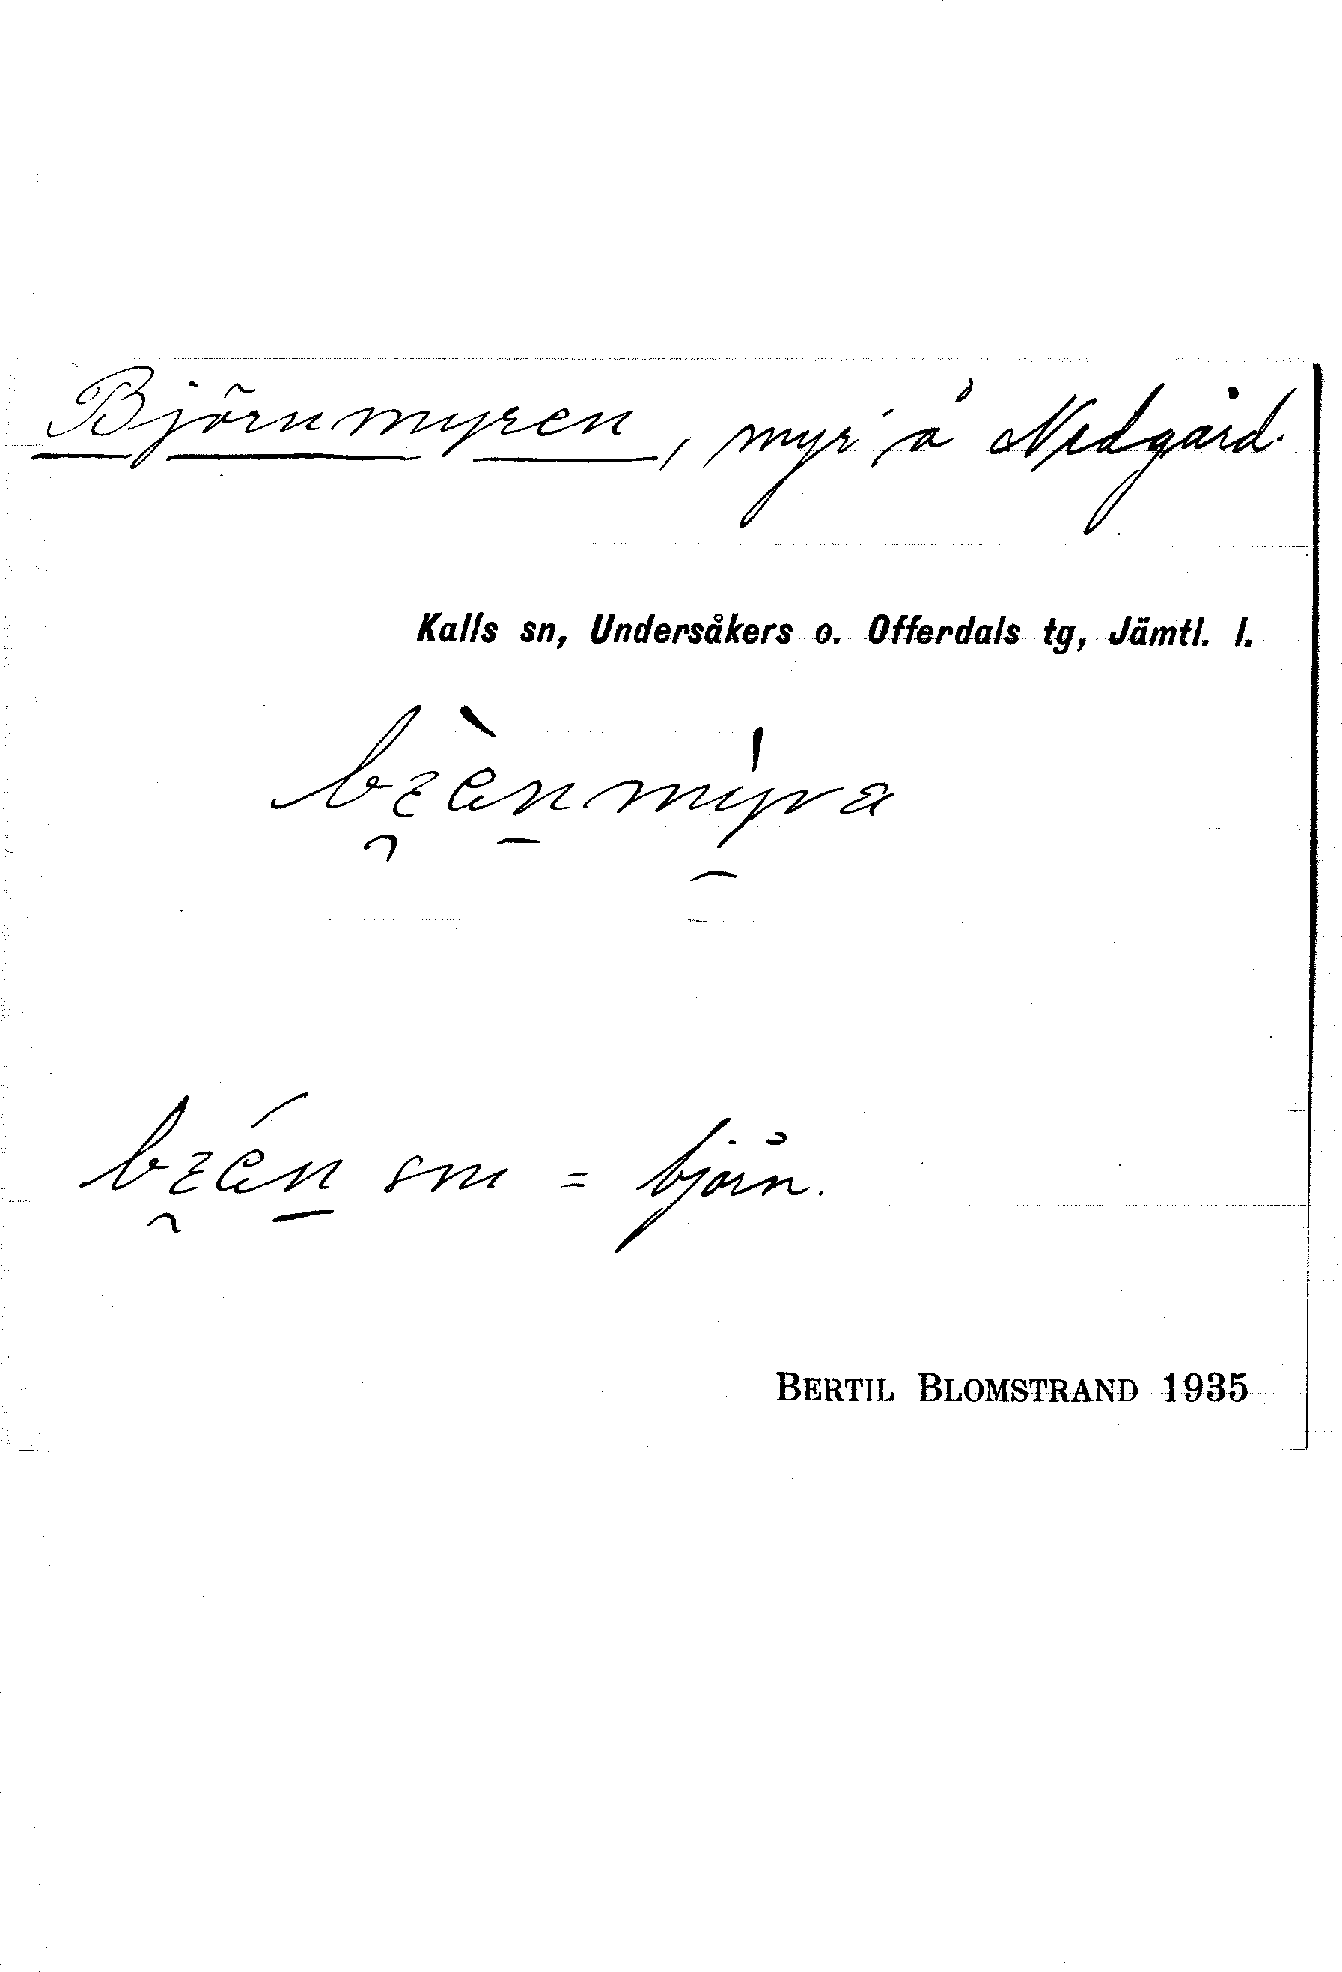 Björnmyren, myr å Nedgård.
Kalls sn, Undersåkers o. Offerdals tg, Jämtl. l.
sm = björn.
BERTIL BLOMSTRAND 1935